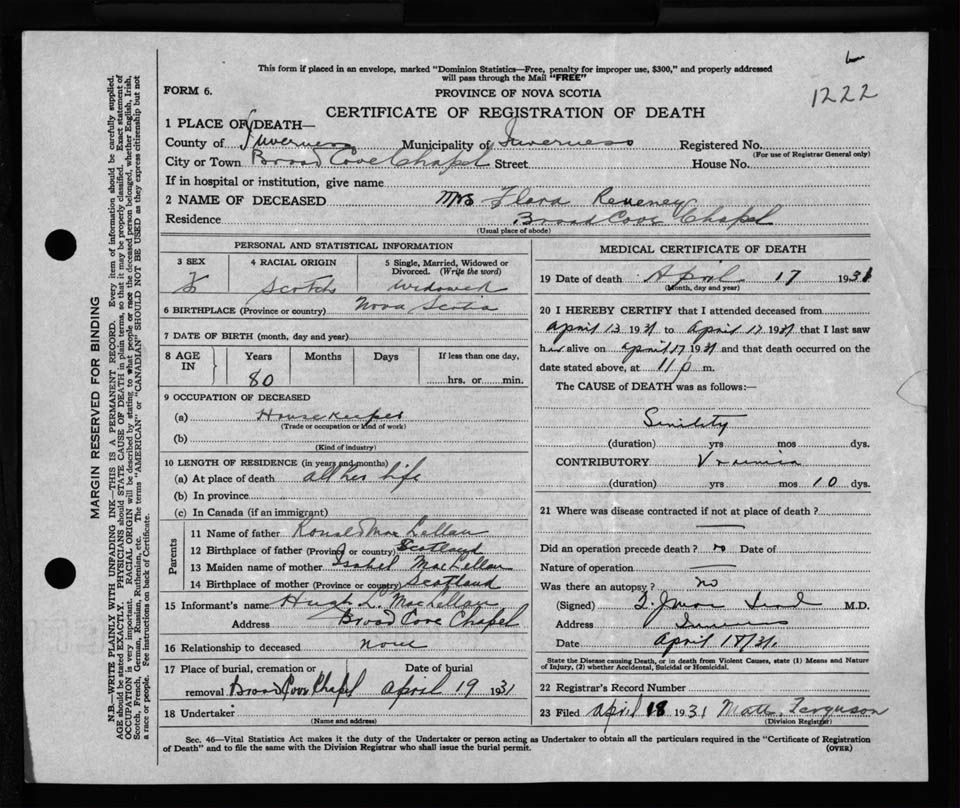 This form if placed in an envelope, marked "Dominion Statistics—Free, penalty for improper use, $300," and properly addressed
will pass through the Mail "FREE"
FORM 6.
PROVINCE OF NOVA SCOTIA
1222
CERTIFICATE OF REGISTRATION OF DEATH
1 PLACE OF DEATH—
County of Inverness Municipality of Inverness Registered No.
(For use of Registrar General only)
City or Town Broad Cove Chapel Street House No.
If in hospital or institution, give name
2 NAME OF DECEASED Mrs Flora
Residence Broad Cove Chapel
(Usual place of abode)
PERSONAL AND STATISTICAL INFORMATION
3 SEX 4 RACIAL ORIGIN 5 Single, Married, Widowed or
Divorced. (Write the word)
F Scotch Widowed
6 BIRTHPLACE (Province or country) Nova Scotia
7 DATE OF BIRTH (month, day and year)
8 AGE IN Years Months Days If less than one day,
80 hrs. or min.
9 OCCUPATION OF DECEASED
(a) Housekeeper
(Trade or occupation or kind of work)
(b)
(Kind of industry)
10 LENGTH OF RESIDENCE (in years and months)
(a) At place of death all her life
(b) In province
(c) In Canada (if an immigrant)
Parents
11 Name of father Ronald MacLellan
12 Birthplace of father (Province or country) Scotland
13 Maiden name of mother Isabel MacLellan
14 Birthplace of mother (Province or country) Scotland
15 Informant's name Hugh L. MacLellan
Address Broad Cove Chapel
16 Relationship to deceased none
17 Place of burial, cremation or Date of burial
removal Broad Cove Chapel April 19 1931
18 Undertaker
(Name and address)
MEDICAL CERTIFICATE OF DEATH
19 Date of death April 17 1931
(Month, day and year)
20 I HEREBY CERTIFY that I attended deceased from
April 13 1931 to April 17 1931 that I last saw
her alive on April 17 1931 and that death occurred on the
date stated above, at 11 p m.
The CAUSE of DEATH was as follows:—
Senility
(duration) yrs mos dys.
CONTRIBUTORY Uraemia
(duration) yrs mos 10 dys.
21 Where was disease contracted if not at place of death?
Did an operation precede death? no Date of
Nature of operation
Was there an autopsy? no
(Signed) M.D.
Address Inverness
Date April 18/31.
State the Disease causing Death, or in death from Violent Causes, state (1) Means and Nature
of Injury, (2) whether Accidental, Suicidal or Homicidal.
22 Registrar's Record Number
23 Filed April 18 1931 Matt. Ferguson
(Division Registrar)
Sec. 46—Vital Statistics Act makes it the duty of the Undertaker or person acting as Undertaker to obtain all the particulars required in the "Certificate of Registration
of Death" and to file the same with the Division Registrar who shall issue the burial permit.
(OVER)
MARGIN RESERVED FOR BINDING
N.B.—WRITE PLAINLY WITH UNFADING INK—THIS IS A PERMANENT RECORD. Every item of information should be carefully supplied.
AGE should be stated EXACTLY. PHYSICIANS should STATE CAUSE OF DEATH in plain terms, so that it may be properly classified. Exact statement of
OCCUPATION is very important. RACIAL ORIGIN will be described by stating to what people or race the deceased person belonged, whether English, Irish,
Scotch, French, German, Russian, Ruthenian, etc. The terms "AMERICAN" or "CANADIAN" SHOULD NOT BE USED as they express citizenship but not
a race or people. See instructions on back of Certificate.